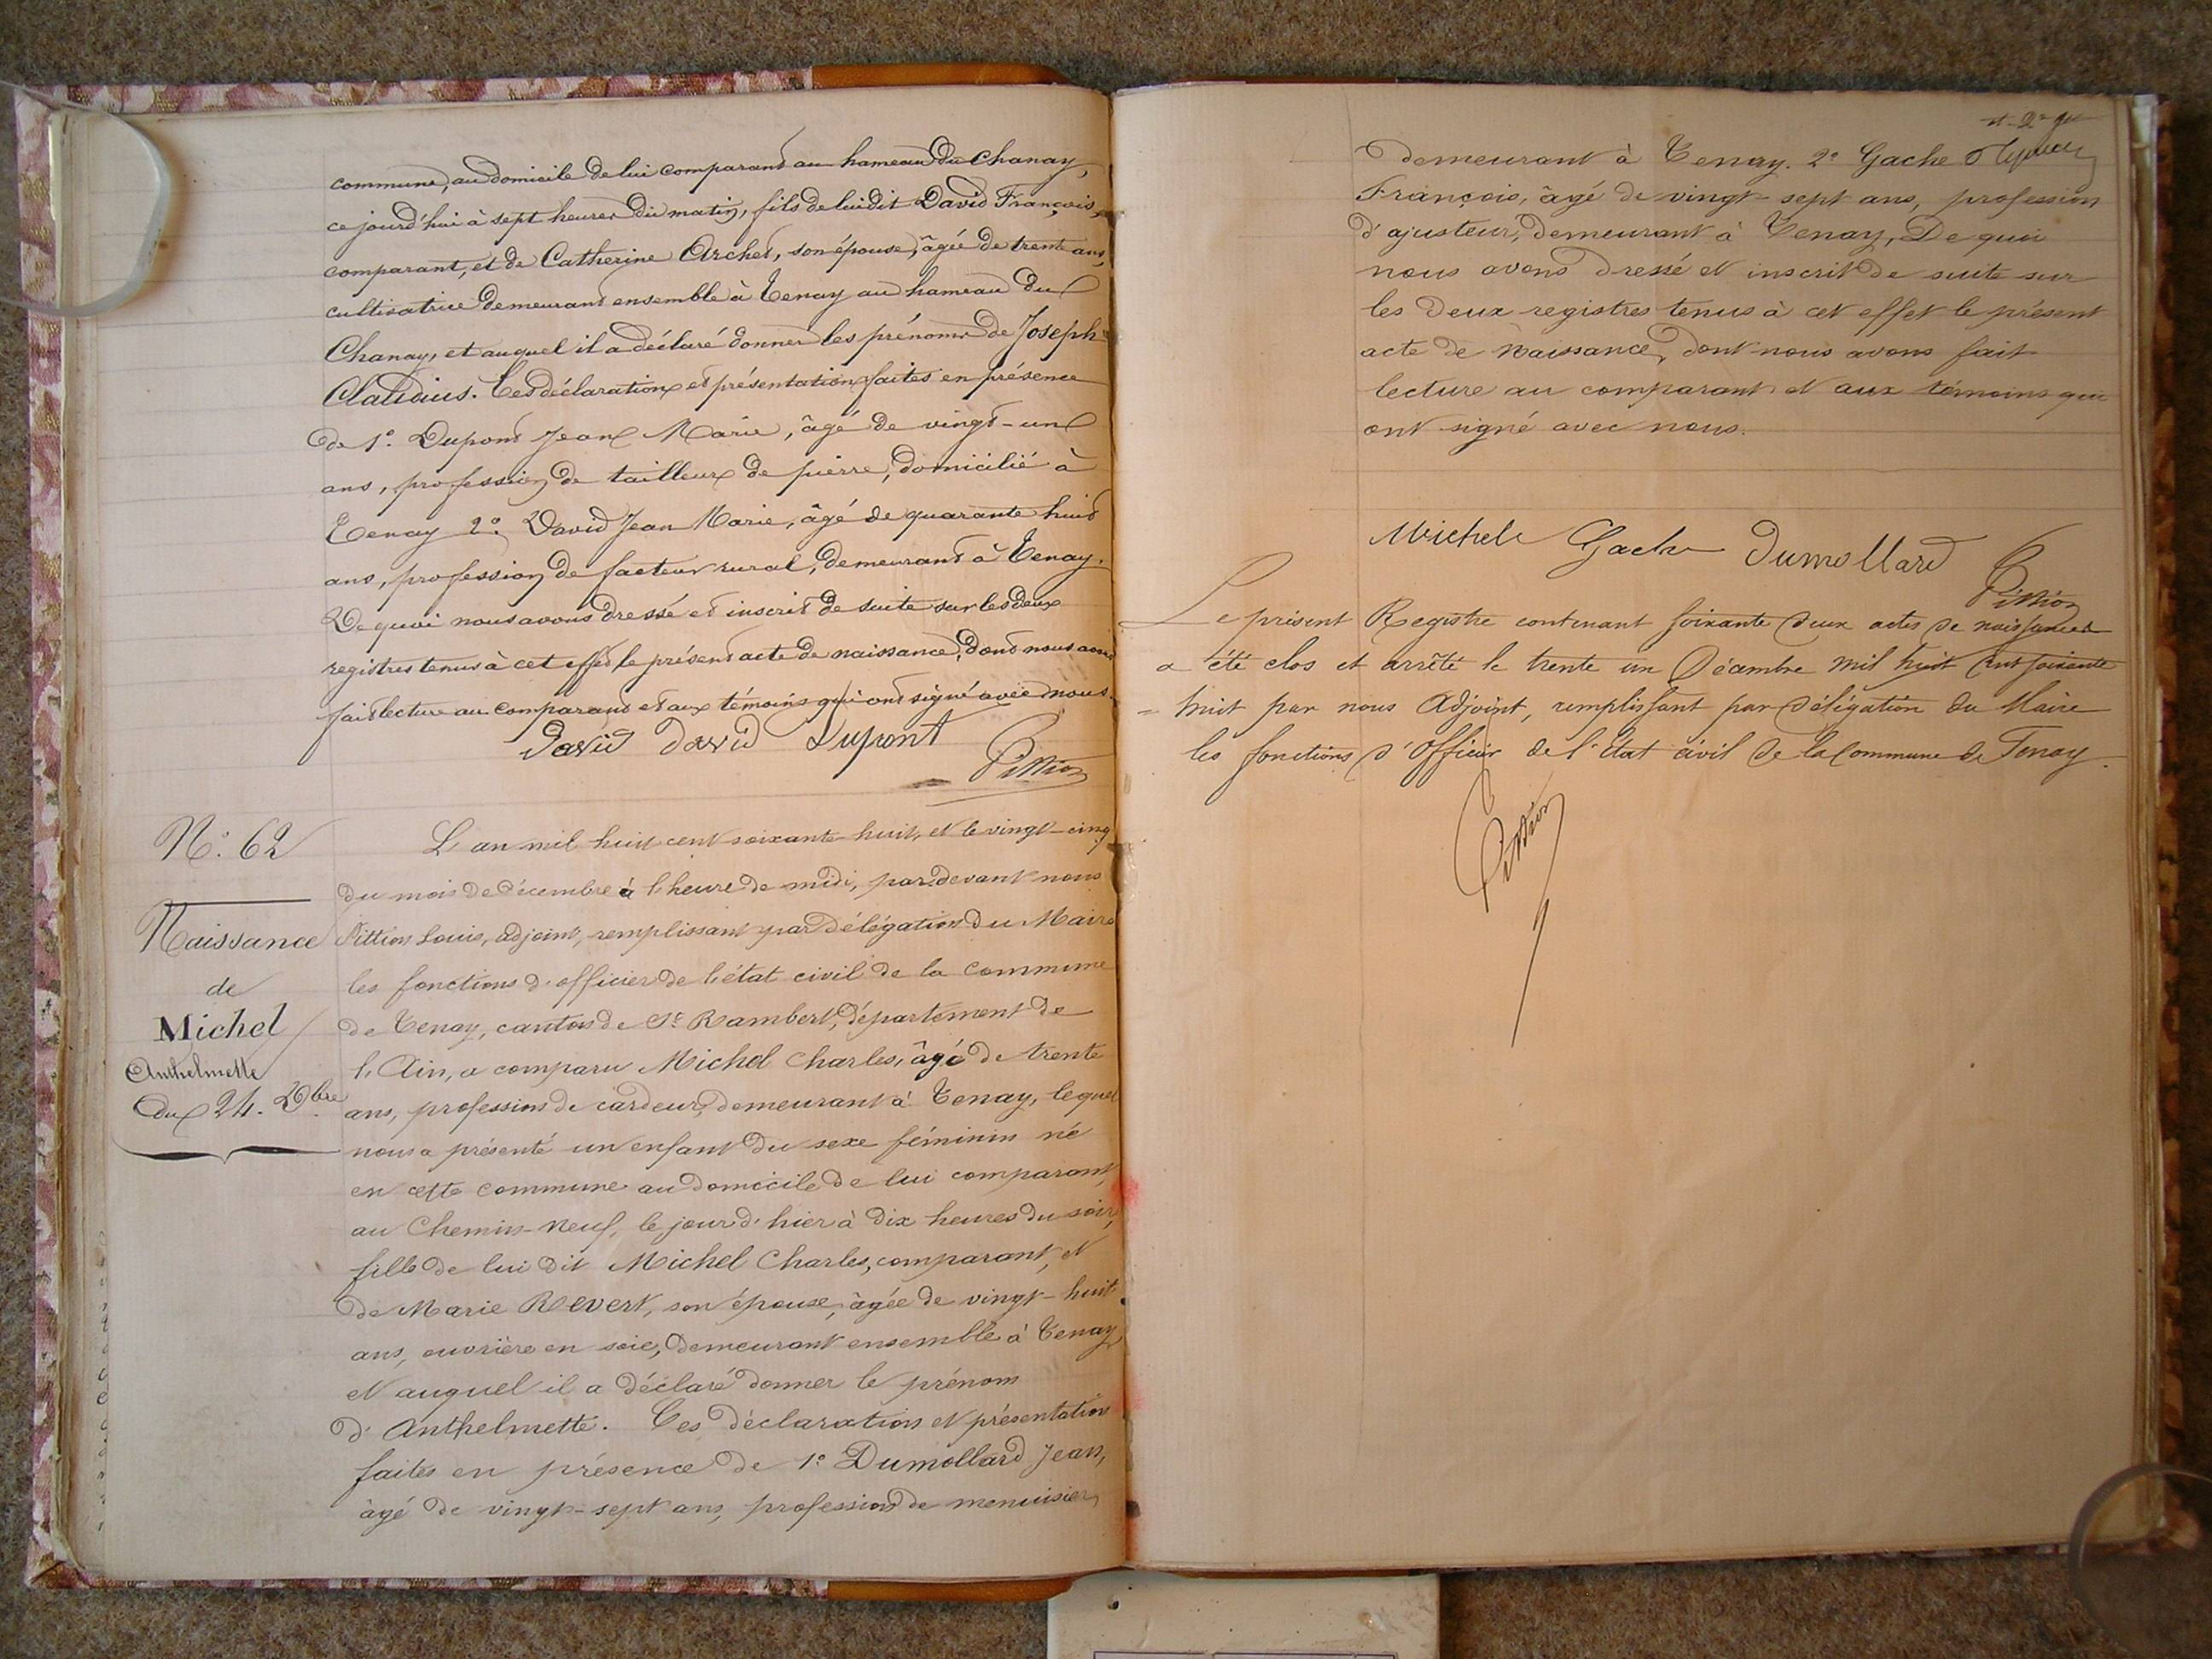 commune, au domicile de lui comparant au hameau du Chanay,
ce jourd'hui à sept heures du matin, fils de lui dit David François,
comparant, et de Catherine Archet, son épouse, âgée de trente ans,
cultivatrice demeurant ensemble à Tenay au hameau du
Chanay, et auquel il a déclaré donner les prénoms de Joseph-
Claudius. Ces déclaration et présentation faites en présence
de 1º. Dupont Jean Marie, âgé de vingt-un
ans, profession de tailleur de pierre, domicilié à
Tenay 2º. David Jean Marie, âgé de quarante huit
ans, profession de facteur rural, demeurant à Tenay.
De quoi nous avons dressé et inscrit de suite sur les deux
registres tenus à cet effet le présent acte de naissance, dont nous avons
fait lecture au comparant et aux témoins qui ont signé avec nous.
David David Dupont
Pittion
Nº. 62
Naissance
de
Michel
Anthelmette
du 24. Xbre
L'an mil huit cent soixante-huit, et le vingt-cinq
du mois de Décembre à l'heure de midi, par devant nous
Pittion Louis, adjoint, remplissant par délégation du Maire
les fonctions d'officier de l'état civil de la commune
de Tenay, canton de St Rambert, département de
l'Ain, a comparu Michel Charles, âgé de trente
ans, profession de cardeur, demeurant à Tenay, lequel
nous a présenté un enfant du sexe féminin né
en cette commune au domicile de lui comparant,
au Chemin-Neuf, le jour d'hier à dix heures du soir,
fille de lui dit Michel Charles, comparant, et
de Marie Revert, son épouse, âgée de vingt-huit
ans, ouvrière en soie, demeurant ensemble à Tenay,
et auquel il a déclaré donner le prénom
d'Anthelmette. Ces déclaration et présentation
faites en présence de 1º Dumollard Jean,
âgé de vingt-sept ans, profession de menuisier,
demeurant à Tenay. 2º Gache
François, âgé de vingt-sept ans, profession
d'ajusteur, demeurant à Tenay, De quoi
nous avons dressé et inscrit de suite sur
les deux registres tenus à cet effet le présent
acte de naissance, dont nous avons fait
lecture au comparant et aux témoins qui
ont signé avec nous.
Michel Gache Dumollard
Pittion
Le présent Registre contenant soixante deux actes de naissances
a été clos et arrêté le trente un Décembre mil huit cent soixante
- huit par nous Adjoint, remplissant par délégation du Maire
les fonctions d'officier de l'état civil de la Commune de Tenay.
Pittion